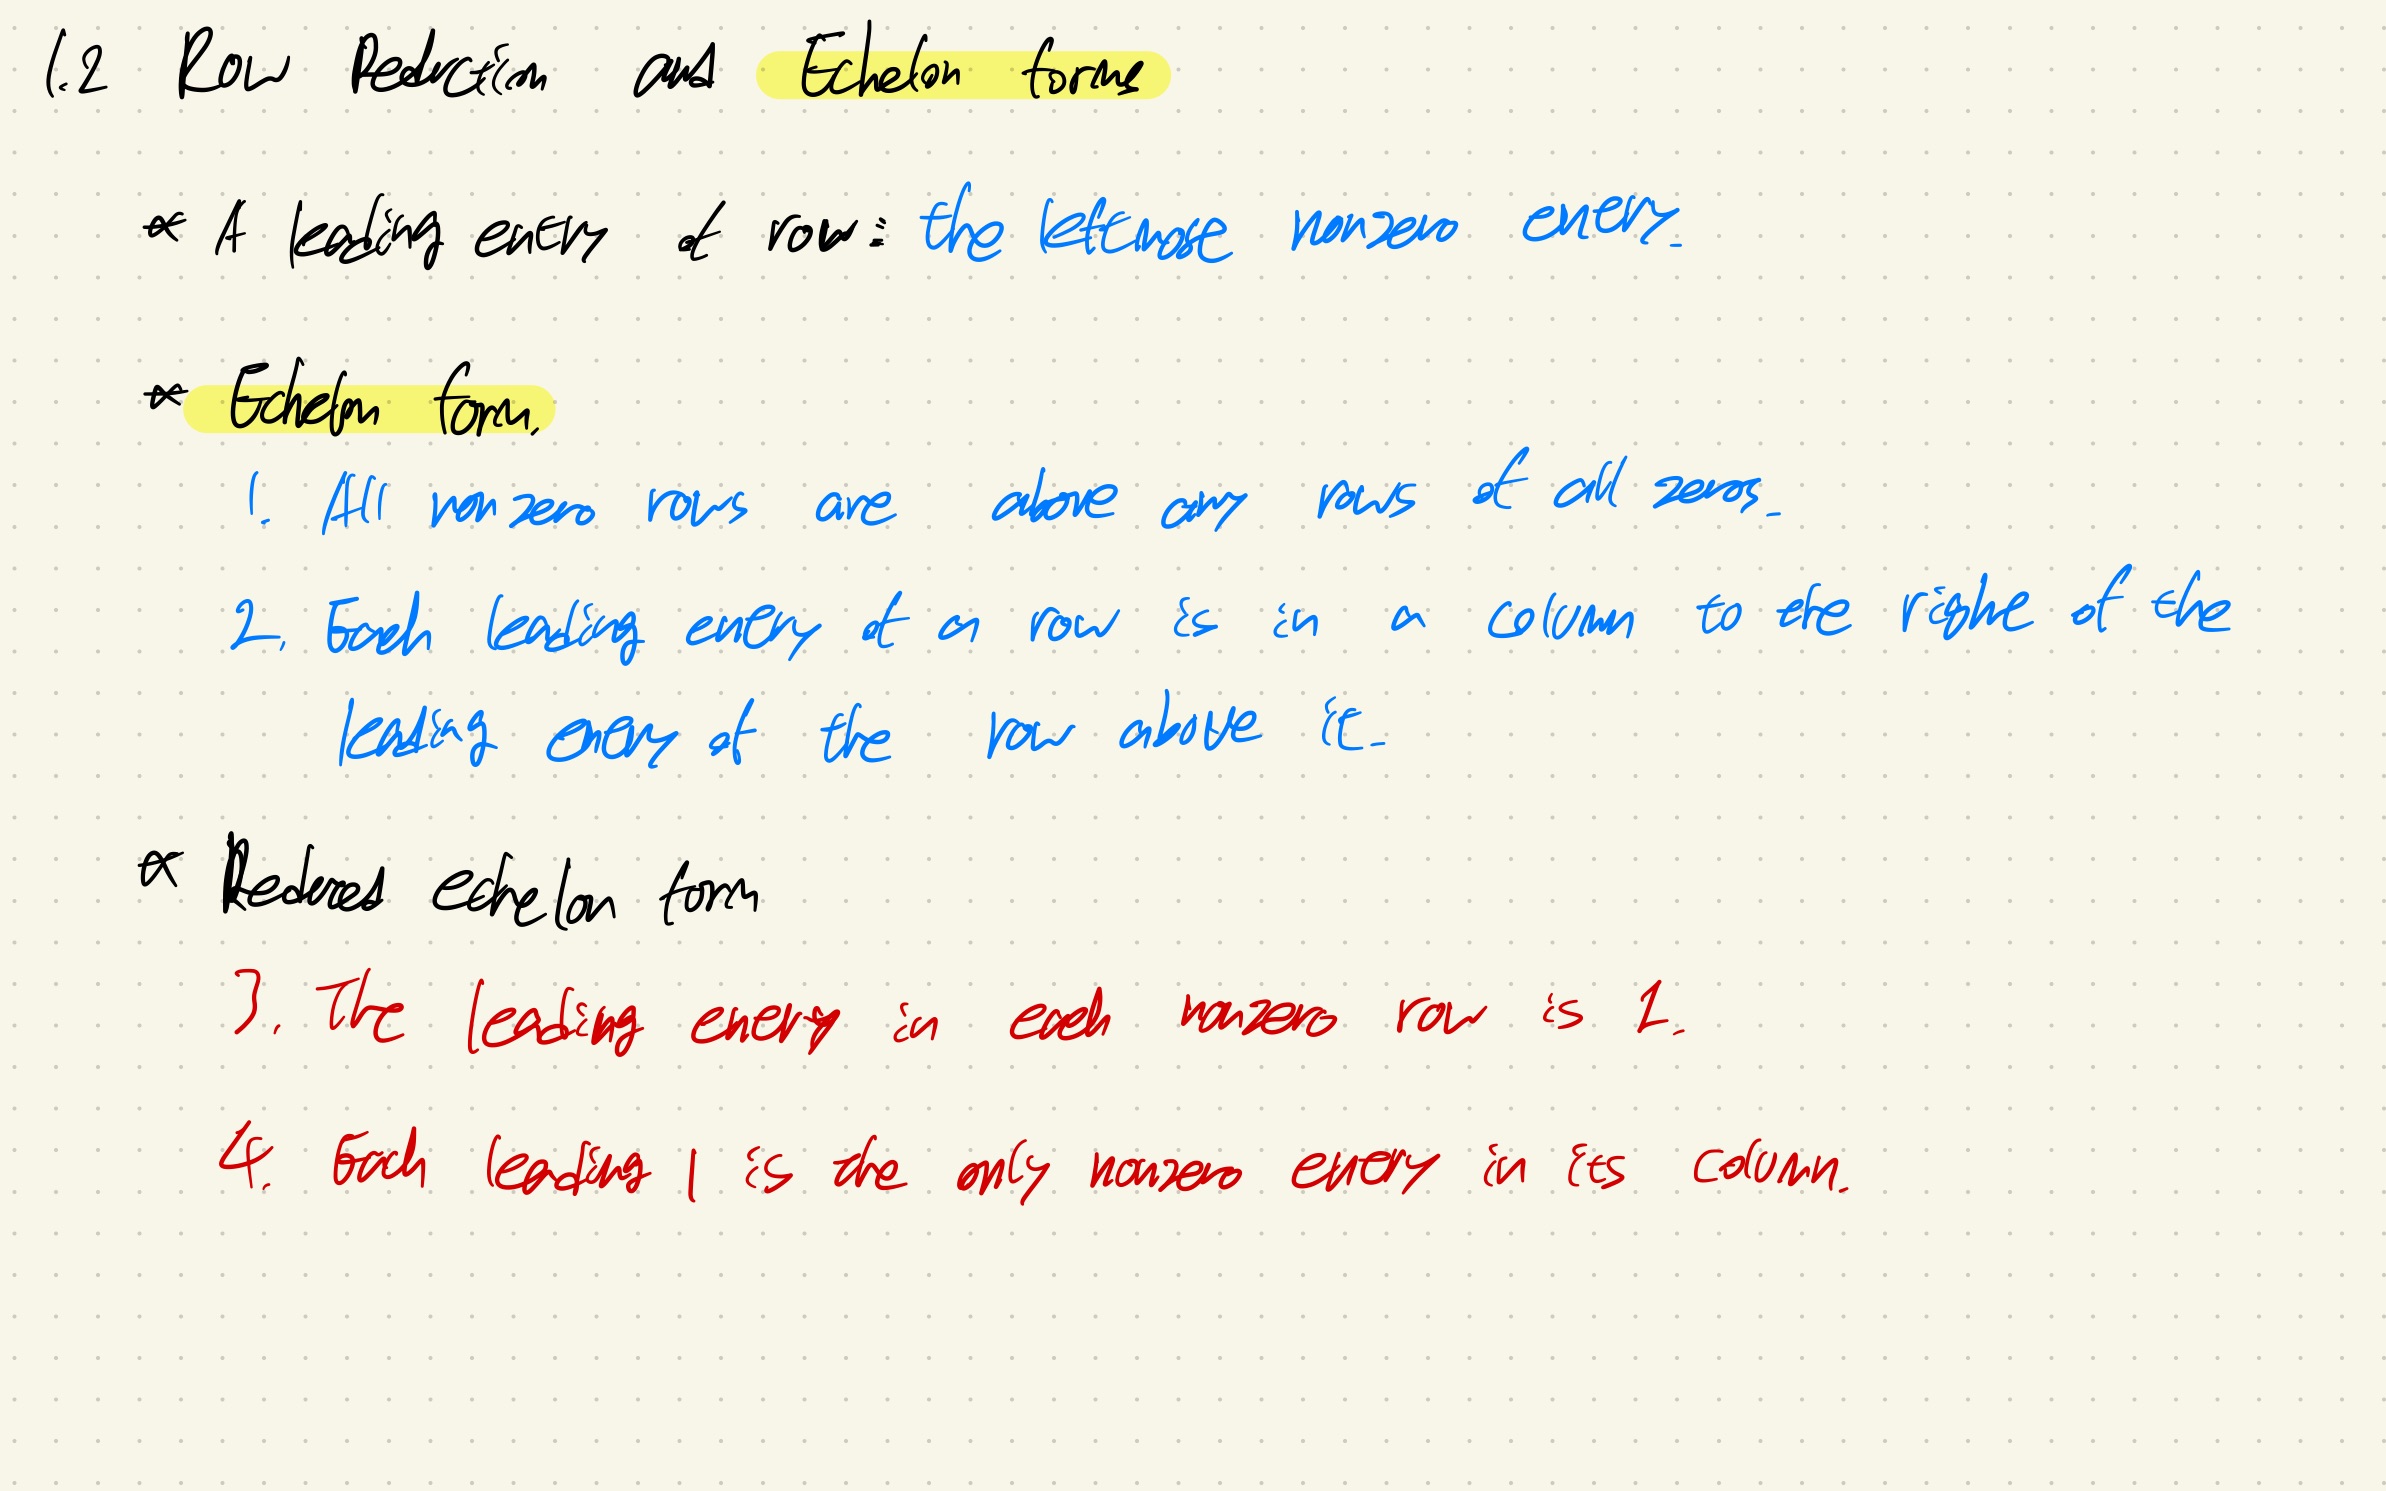 1.2 Row Reduction and Echelon forms
* A leading entry of row: the leftmost nonzero entry.
* Echelon form.
1. All nonzero rows are above any rows of all zeros.
2. Each leading entry of a row is in a column to the right of the
leading entry of the row above it.
* Reduced echelon form
3. The leading entry in each nonzero row is 1.
4. Each leading 1 is the only nonzero entry in its column.